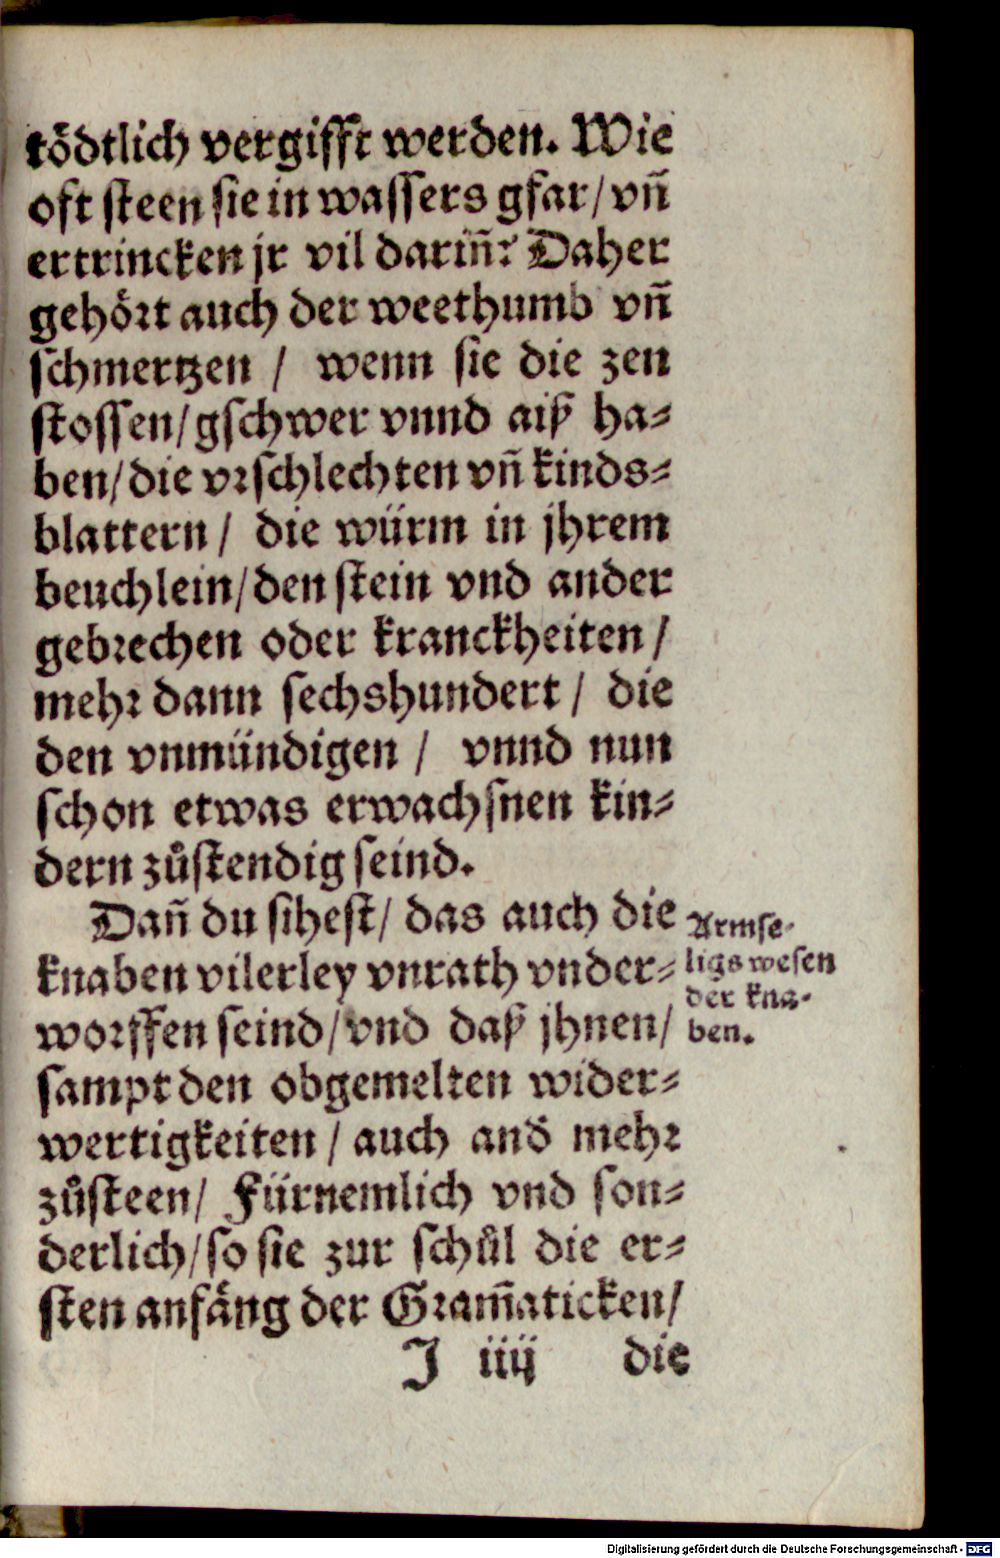 tödtlich vergifft werden. Wie
oft steen sie in wassers gfar/ vñ
ertrincken jr vil dariñ? Daher
gehört auch der weethumb vñ
schmertzen / wenn sie die zen
stossen/ gschwer vnnd aiß ha⸗
ben/ die vrschlechten vñ kinds⸗
blattern / die würm in jhrem
beuchlein/ den stein vnd ander
gebrechen oder kranckheiten /
mehr dann sechshundert / die
den vnmündigen / vnnd nun
schon etwas erwachsnen kin⸗
dern zůstendig seind.
Dañ du sihest/ das auch die
knaben vilerley vnrath vnder⸗
worffen seind/ vnd daß jhnen/
sampt den obgemelten wider⸗
wertigkeiten / auch and̃ mehr
zůsteen/ Fürnemlich vnd son⸗
derlich/ so sie zur schůl die er⸗
sten anfäng der Gram̃aticken/
J iiij die
Armse⸗
ligs wesen
der kna⸗
ben.
Digitalisierung gefördert durch die Deutsche Forschungsgemeinschaft - DFG